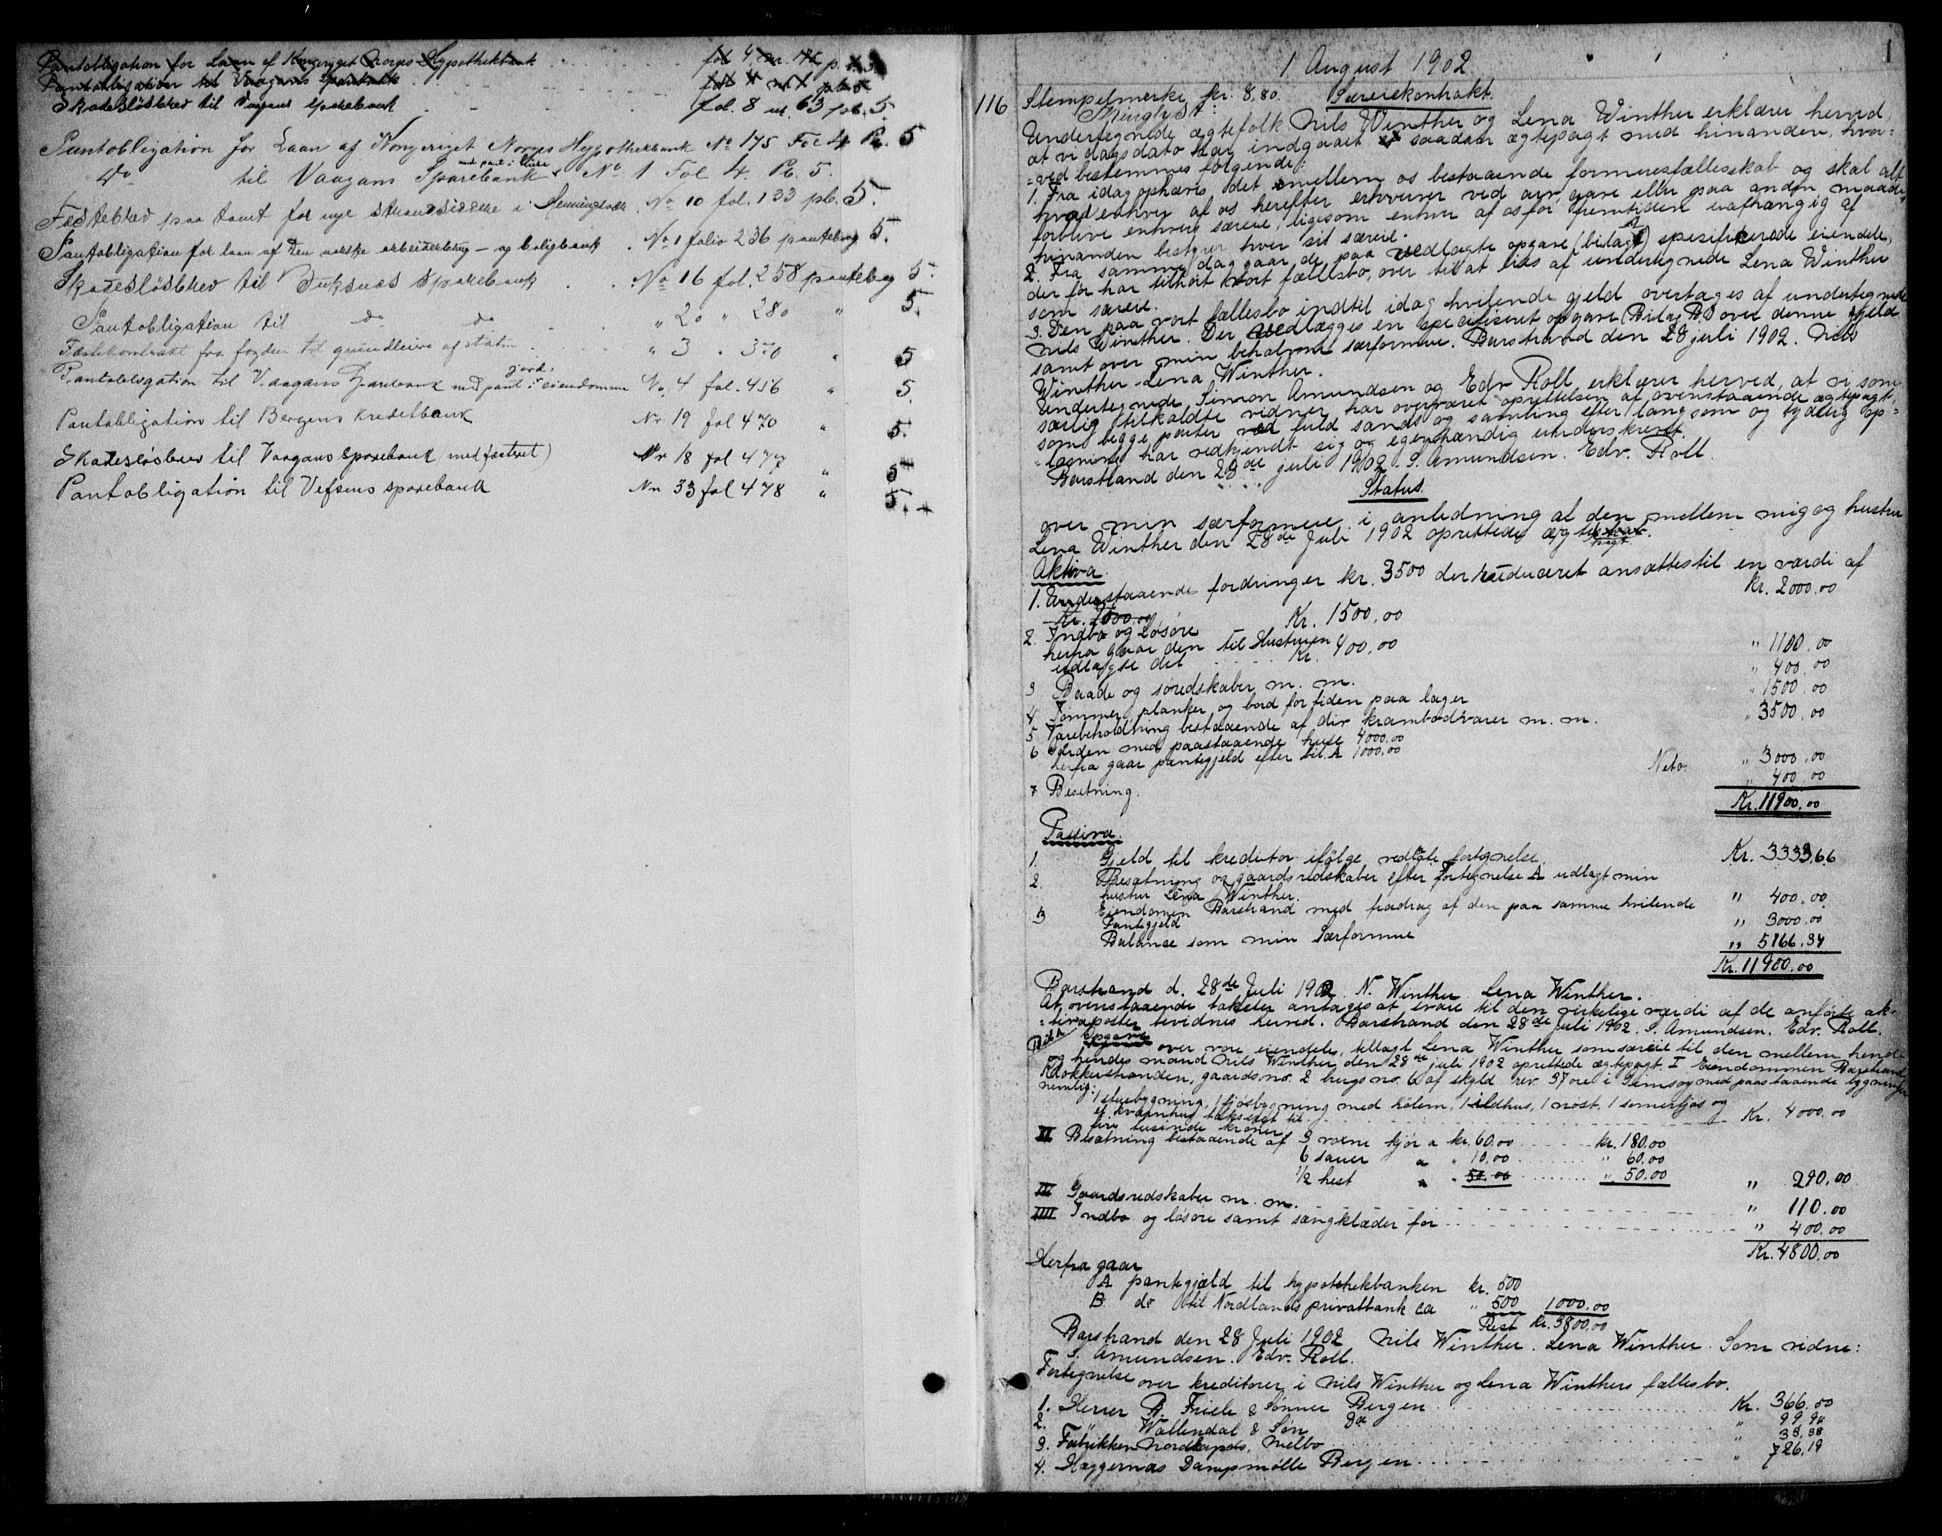 Pantobligation for Laan af Kongeriget Norges Hypothekbank fol 4 nr. 175 p.
Pantobligation til Vaagans Sparebank
Skadesløsbrev til Vaagans Sparebank fol. 8 nr. 63 pb. 5.
Pantobligation for Laan af Kongeriget Norges Hypothekbank No 175 Fol 4 Pb. 5
do til Vaagans Sparebank med pant i No 1 Fol 4. Pb. 5.
Festebrev paa tomt for nye i No 10 fol. 133 pb. 5.
Pantobligation for laan af Den norske arbeiderbrug- og boligbank No 1 folio 236 pantebog 5.
Skadesløsbrev til Buksnes Sparebank No 16 fol. 258 pantebog 5.
Pantobligation til do do " 20 " 280 " 5.
Festekontrakt fra fogden til grundleiere af " 3 " 370 " 5
Pantobligation til Vaagans Sparebank med pant i jord-eiendomme No. 4 fol. 456 " 5.
Pantobligation til Bergens Kreditbank Nr 19 fol 470 " 5.
Skadesløsbrev til Vaagans Sparebank (med festeret) Nr 18 fol 477 " 5
Pantobligation til Vefsens sparebank Nr 33 fol 478 " 5.
1
1 August 1902
116 Stempelmerke kr. 8,80. Særeiekontrakt.
Undertegnede ægtefolk Nils Winther og Lena Winther erklære herved,
at vi dagsdato har indgaaet saadan ægtepagt med hinanden, hvor-
=ved bestemmes følgende:
1. Fra idag ophæves det mellem os bestaaende formuesfællesskab og skal alt
hvad enhver af os herefter erhverver ved arv, gave eller paa anden maade
forblive enhvers særeie, ligesom enhver af os for fremtiden uafhængig af
hinanden bestyrer hver sit særeie.
2. Fra samme dag gaar de paa vedlagte opgave (bilag A) spesificerede eiendele,
der før har tilhørt vort fællesbo, over til at eies af undertegnede Lena Winther
som særeie.
3. Den paa vort fællesbo indtil idag hvilende gjeld overtages af undertegnede
Nils Winther. Der vedlægges en specificeret opgave (Bilag B.) over denne gjeld
samt over min beholdne særformue. Barstrand den 28 juli 1902. Nils
Winther Lena Winther.
Undertegnede, Simon Amundsen og Edv Roll erklærer herved, at vi som
særlig tilkaldte vidner har overværet oprettelsen af ovenstaaende ægtepagt,
som begge parter ved fuld sands og samling efter langsom og tydelig op=
=læsning har vedkjendt sig og egenhændig underskrevet.
Barstrand den 28de juli 1902. S. Amundsen. Edv. Roll.
Status
over min særformue i anledning al den mellem mig og hustru
Lena Winther den 28de Juli 1902 oprettede ægtepagt.
Aktiva
1. Udestaaende fordringer kr. 3500 der reduceret ansættes til en værdi af kr. 2000.00
2. Indbo og løsøre Kr. 1500.00
herfra gaar den til Hustruen
udlagte del Kr. 400.00 " 1100.00
3 Baade og søredskaber m. m. " 400.00
4 Tømmer, planker og bord for tiden paa lager " 1500.00
5 Varebeholdning bestaaende af div. krambodvarer m. m. " 3500.00
6 Gården med paastaaende huse 4000.00
herfra gaar pantegjeld efter bil. A 1000.00 Neto. " 3000.00
7 Besetning. " 400.00
Kr. 11900.00
Passiva.
1. Gjeld til kreditor ifølge vedlagte fortegnelse Kr. 3333.66
2. Besætning og gaardsredskaber efter fortegnelse A udlagt min
hustru Lena Winther. " 400.00
3 Eiendomen Barstrand med fradrag af den paa samme hvilende
Pantegjeld " 3000.00
Balance som min Særformue " 5166.34
Kr. 11900.00
Barstrand d. 28de Juli 1902 N. Winther Lena Winther.
At ovenstaaende takster antages at svare til den virkelige værdi af de anførte ak-
=tivaposter bevidnes herved. Barstrand den 28de juli 1902. S. Amundsen. Edv. Roll.
Bil. A Opgave over vore eiendele, tillagt Lena Winther som særeie til den mellem hende
og hendes mand Nils Winther den 28de juli 1902 oprettede ægtepagt. I Eiendommen Barstrand
Klokkerstranden, gaardsno. 2 brugsno. 6 af skyld 37 øre i Gimsøy med paastaaende bygninger
nemlig: 1 stuebygning, 1 fjøsbygning med kølem, 1 ildhus, 1 nøst, 1 somerfjøs og
et kværnhus takseret til
fire tusinde kroner Kr. 4000.00
II Besætning bestaaende af 3 voxne kjør a kr. 60.00 kr. 180.00
6 sauer a " 10.00 " 60.00
1/2 hest a " 50.00 " 50.00 " 290.00
III Gaardsredskaber m. m. " 110.00
IIII Indbo og løsøre samt sængklæder for " 400.00
Kr. 4800.00
Herfra gaar
A pantegjæld til hypothekbanken kr. 500
B do til Nordlands privatbank ca " 500 1000.00
Rest kr. 3800.00
Barstrand den 28 Juli 1902 Nils Winther. Lena Winther. Som vidne:
S. Amundsen. Edv. Roll.
Fortegnelse over kreditorer i Nils Winther og Lena Winthers fællesbo.
1. Herrer B. Friele & Sønner Bergen Kr. 366.00
2. Wallendal & Søn do " 99.90
3. Fabrikken Nordkap, Melbo " 38.38
4. Vaggernæs Dampmølle Bergen " 726.19